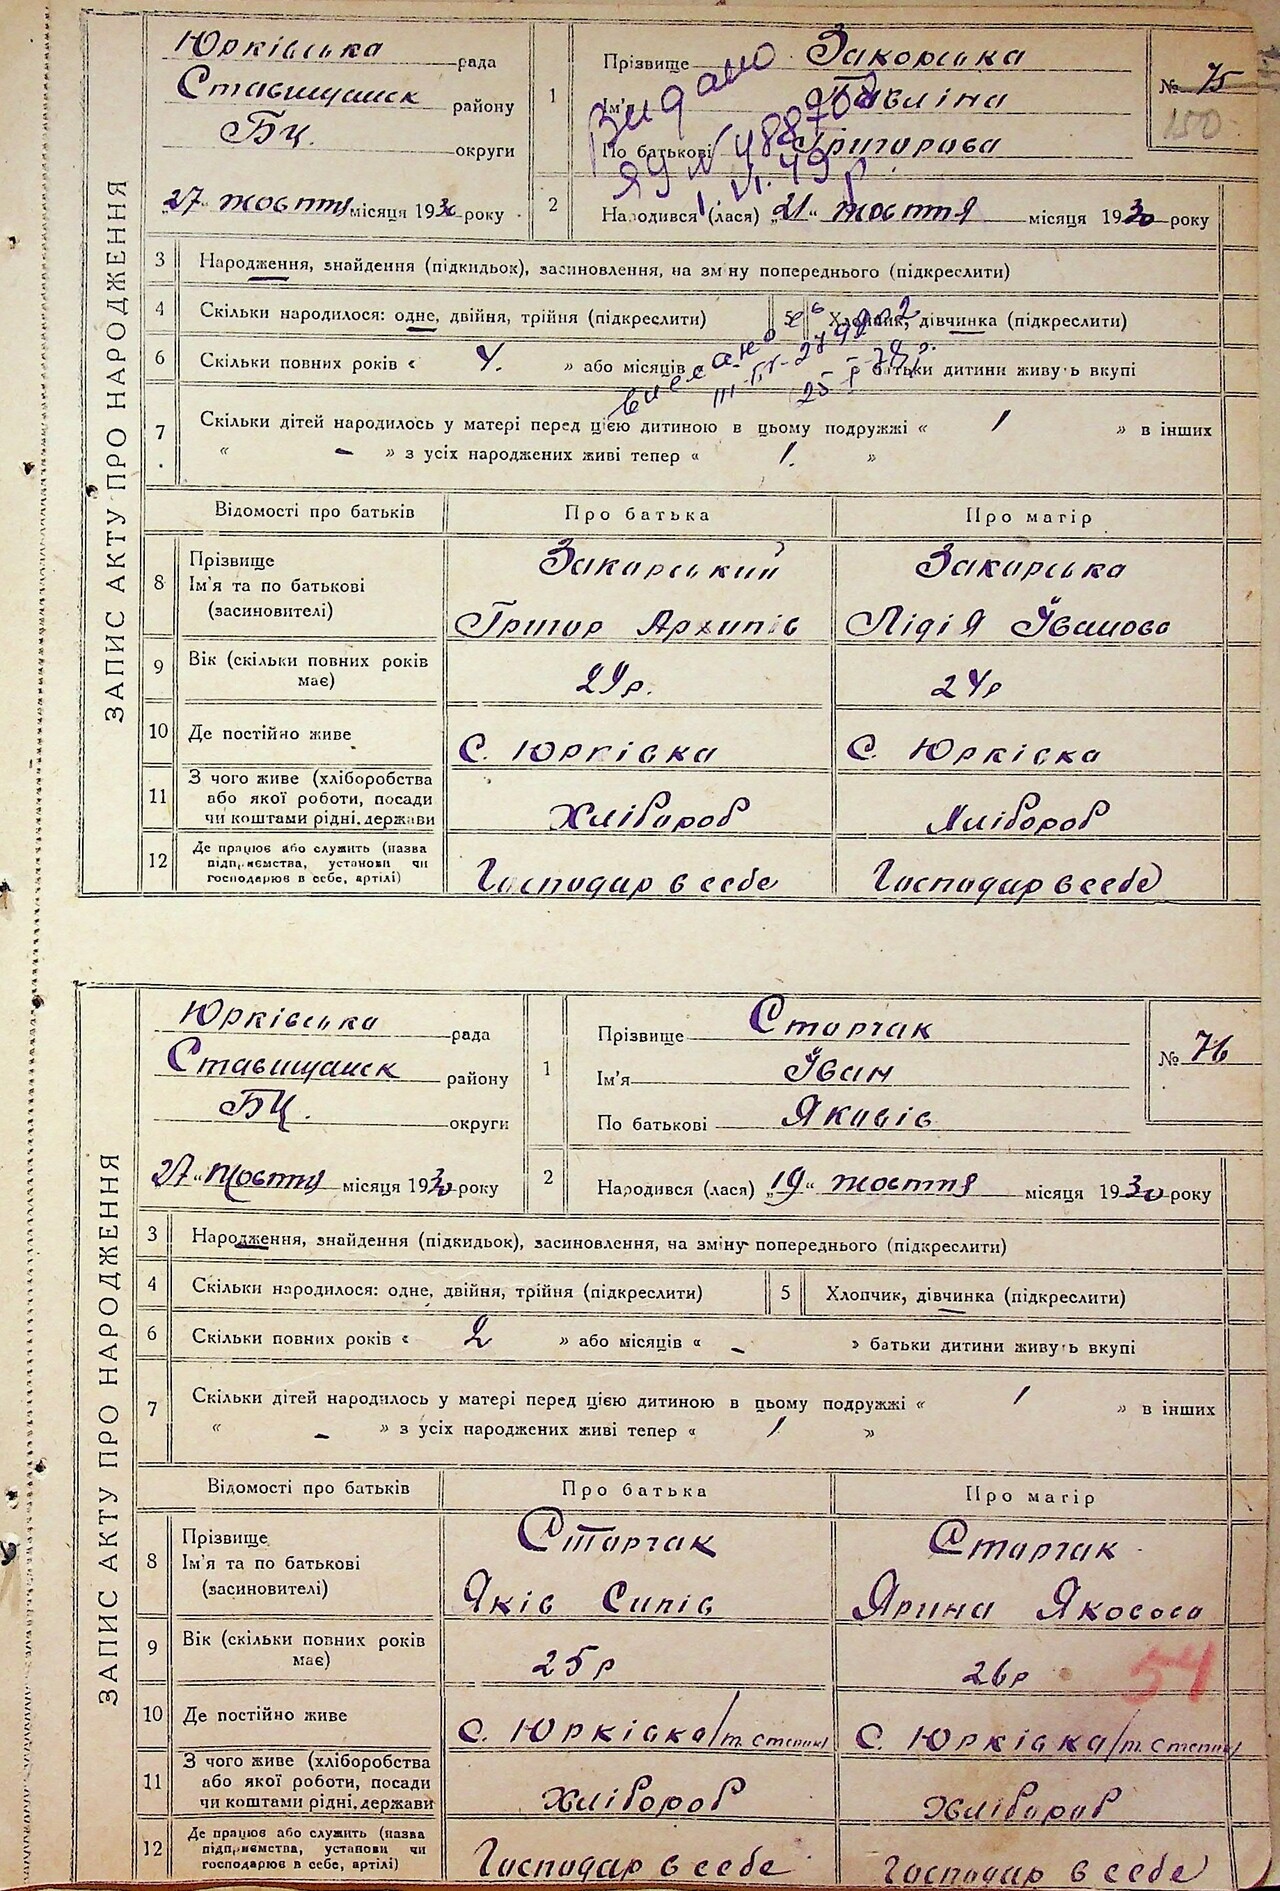 ЗАПИС АКТУ ПРО НАРОДЖЕННЯ
Юрківська рада
Ставищанск району
БЦ. округи
„27“ жовтня місяця 1930 року
1 Прізвище Закорська
Ім'я Павліна
По батькові Григорова
№ 75
150
Видано
ЯЩ N 488708
1 VI. 49 р
2 Народився (лася) „21“ жовтня місяця 1930 року
3 Народження, знайдення (підкидьок), засиновлення, на зміну попереднього (підкреслити)
4 Скільки народилося: одне, двійня, трійня (підкреслити) 5 Хлопчик, дівчинка (підкреслити)
6 Скільки повних років « 4. » або місяців батьки дитини живуть вкупі
25 I
7 Скільки дітей народилось у матері перед цією дитиною в цьому подружжі « 1 » в інших
« – » з усіх народжених живі тепер « 1. »
Відомості про батьків Про батька Про матір
8 Прізвище Закарський Закарська
Ім'я та по батькові
(засиновителі) Григор Архипів Лідія Іванова
9 Вік (скільки повних років має) 29р. 24р
10 Де постійно живе С. Юрківка С. Юрківка
11 З чого живе (хліборобства
або якої роботи, посади
чи коштами рідні, держави Хлібороб Хлібороб
12 Де працює або служить (назва
підприємства, установи чи
господарює в себе, артілі) Господар в себе Господар в себе
ЗАПИС АКТУ ПРО НАРОДЖЕННЯ
Юрківська рада
Ставищанск району
БЦ. округи
„27“ жовтня місяця 1930 року
1 Прізвище Сторчак
Ім'я Іван
По батькові Яковів
№ 76
2 Народився (лася) „19“ жовтня місяця 1930 року
3 Народження, знайдення (підкидьок), засиновлення, на зміну попереднього (підкреслити)
4 Скільки народилося: одне, двійня, трійня (підкреслити) 5 Хлопчик, дівчинка (підкреслити)
6 Скільки повних років « 2 » або місяців « – » батьки дитини живуть вкупі
7 Скільки дітей народилось у матері перед цією дитиною в цьому подружжі « 1 » в інших
« – » з усіх народжених живі тепер « 1 »
Відомості про батьків Про батька Про матір
8 Прізвище Сторчак Сторчак
Ім'я та по батькові
(засиновителі) Яків Сипів Ярина Якосова
9 Вік (скільки повних років має) 25р 26р
54
10 Де постійно живе С. Юрківка С. Юрківка
11 З чого живе (хліборобства
або якої роботи, посади
чи коштами рідні, держави Хлібороб Хлібороб
12 Де працює або служить (назва
підприємства, установи чи
господарює в себе, артілі) Господар в себе Господар в себе